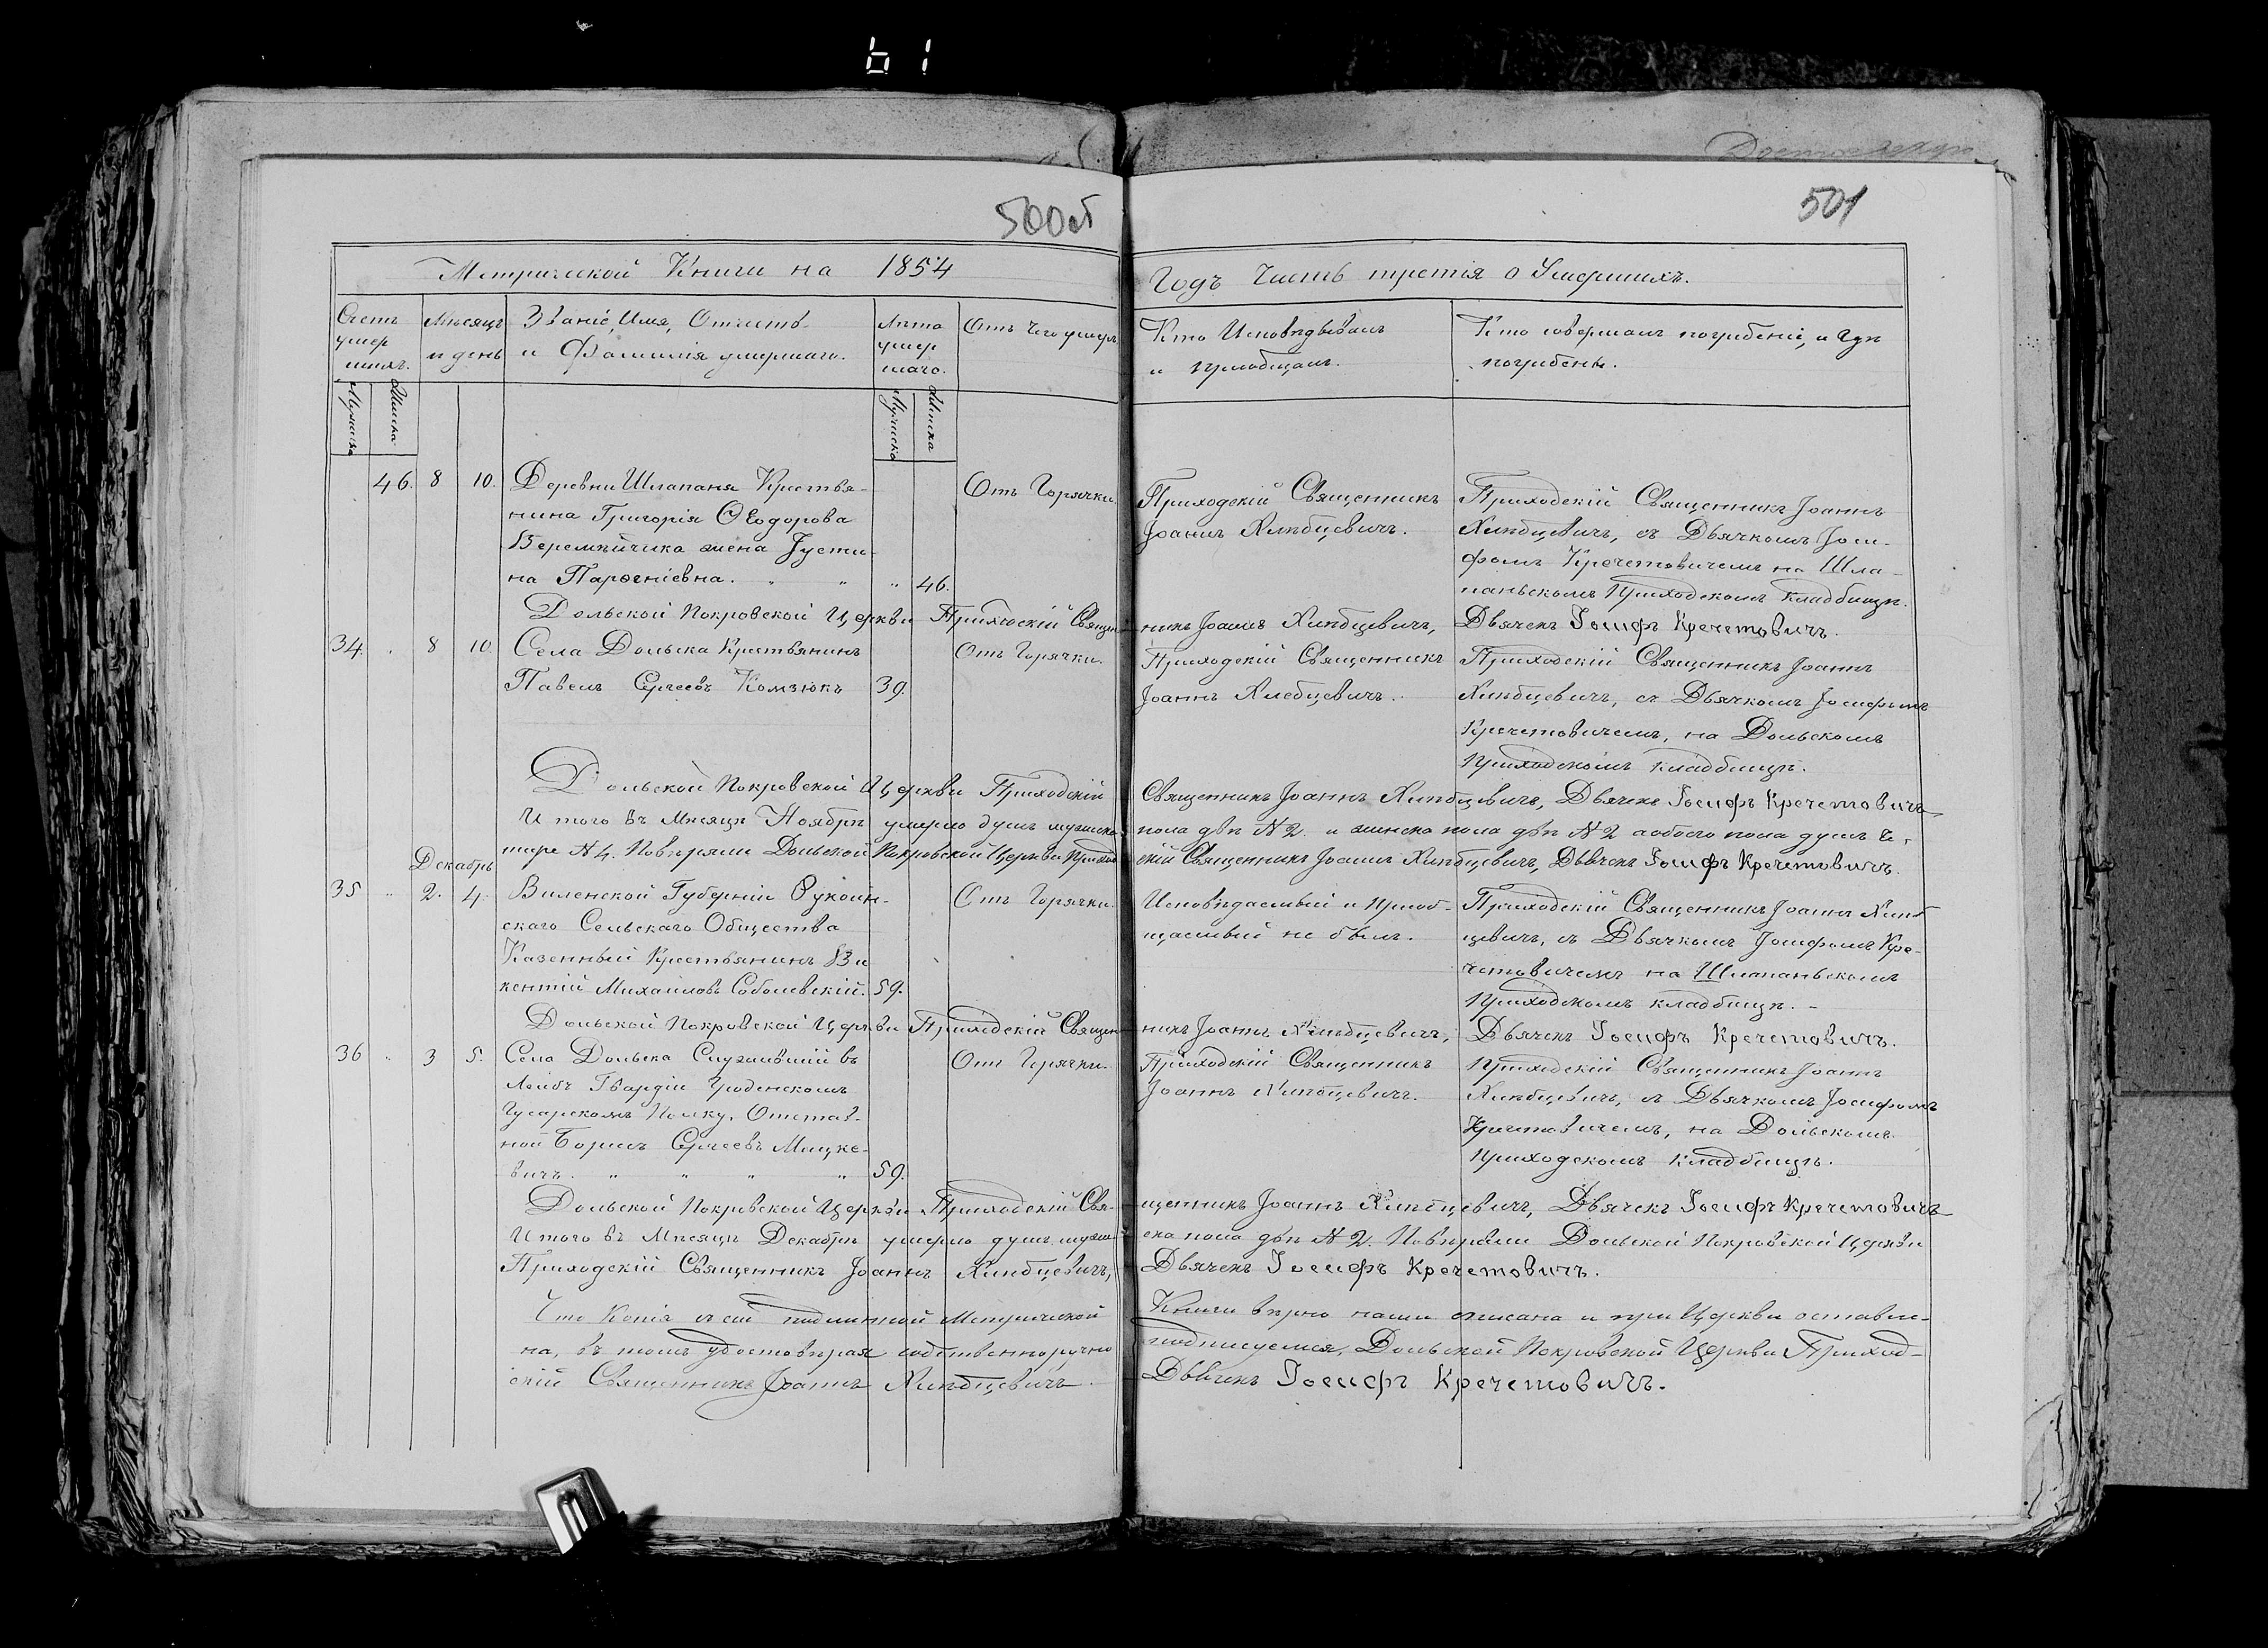 61
500 об
501
Метрической Книги на 1854
Годъ Часть третія о Умершихъ.
Счетъ умер шихъ.
Мѣсяцъ и день
Званіе, Имя, Отчество и Фамилія умершаго.
Лѣта умер шаго.
Отъ чего умеръ
Кто Исповѣдывалъ и пріобщалъ.
Кто совершалъ погребеніе, и гдѣ погребенъ.
Мужеска
Женска
Мужеска
Женска
46. 8 10. Деревни Шлапаня Крестья-
нина Григорія Ѳеодорова
Веремѣйчика жена Јусти-
на Парѳеніевна. " " " 46.
Отъ Горячки.
Приходскій Священникъ
Јоаннъ Хлѣбцевичъ.
Приходскій Священникъ Јоаннъ
Хлѣбцевичъ, съ Дьячкомъ Јоси-
фомъ Кречетовичемъ на Шла-
паньскомъ Приходскомъ кладбищѣ.
Дольской Покровской Церкви Приходскій Священ-
никъ Јоаннъ Хлѣбцевичъ, Дьячекъ Іосифъ Кречетовичъ.
34. 8 10 Села Дольска Крестьянинъ
Павелъ Сергеевъ Комзюкъ 39.
Отъ Горячки.
Приходскій Священникъ
Јоаннъ Хлебцевичъ.
Приходскій Священникъ Јоаннъ
Хлѣбцевичъ, съ Дьячкомъ Јосифомъ
Кречетовичемъ, на Дольскомъ
Приходскомъ кладбищѣ.
Дольской Покровской Церкви Приходскій Священникъ Јоаннъ Хлѣбцевичъ, Дьячекъ Іосифъ Кречетовичъ
Итого въ Мѣсяцѣ Ноябрѣ умерло душъ мужеска пола двѣ № 2. и женска пола двѣ № 2 а обоего пола душъ че-
тыре № 4. Повѣряли Дольской Покровской Церкви Приходскій Священникъ Јоаннъ Хлѣбцевичъ, Дьячекъ Іосифъ Кречетовичъ.
Декабрь
35 " 2. 4. Виленской Губерніи Рукоин-
скаго Сельскаго Общества
Казенный Крестьянинъ Ви
кентій Михаиловъ Соболевскій. 59.
Отъ Горячки.
Исповѣдаемый и пріоб-
щаемый не былъ.
Приходскій Священникъ Јоаннъ Хлѣб
цевичъ, съ Дьячкомъ Јосифомъ Кре-
четовичемъ на Шлапаньскомъ
Приходскомъ кладбищѣ. -
Дольской Покровской Церкви Приходскій Священ-
никъ Јоаннъ Хлѣбцевичъ, Дьячекъ Іосифъ Кречетовичъ.
36 " 3 5. Села Дольска Служившій въ
Лейбъ Гвардіи Гроденскомъ
Гусарскомъ Полку, Отстав-
ной Борисъ Сергеевъ Мицке-
вичъ. " " " " 59.
Отъ Горячки.
Приходскій Священникъ
Јоаннъ Хлѣбцевичъ.
Приходскій Священникъ Јоаннъ
Хлѣбцевичъ, съ Дьячкомъ Јосифомъ
Кречетовичемъ, на Дольскомъ
Приходскомъ кладбищѣ.
Дольской Покровской Церкви Приходскій Свя-
щенникъ Јоаннъ Хлѣбцевичъ, Дьячекъ Іосифъ Кречетовичъ
Итого въ Мѣсяцѣ Декабрѣ умерло душъ муже-
ска пола двѣ № 2. Повѣряли Дольской Покровской Церкви
Приходскій Священникъ Јоаннъ Хлѣбцевичъ, Дьячекъ Іосифъ Кречетовичъ.
Что Копія съ сей подлинной Метрической Книги вѣрно нами списана и при Церкви оставле-
на, въ томъ удостовѣряя собственноручно подписуемся, Дольской Покровской Церкви Приход-
скій Священникъ Јоаннъ Хлѣбцевичъ. Дьячекъ Іосифъ Кречетовичъ.